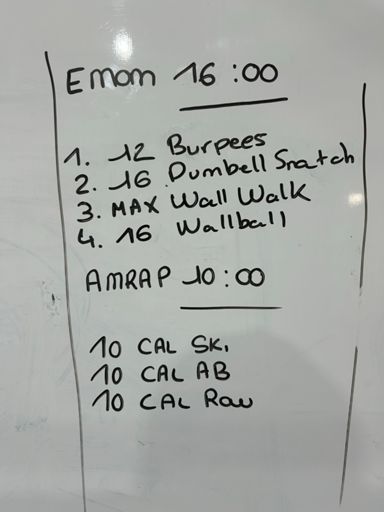 Emom 16:00
1. 12 Burpees
2. 16 Dumbell Snatch
3. MAX Wall Walk
4. 16 Wallball
AMRAP 10:00
10 CAL SKi
10 CAL AB
10 CAL Row